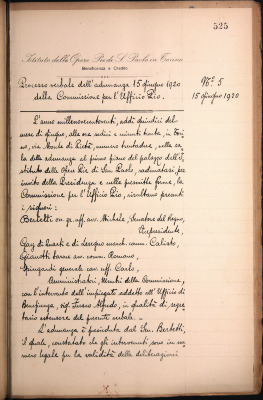 525
Istituto delle Opere Pie di S. Paolo in Torino
Beneficenza e Credito
Processo verbale dell'adunanza 15 giugno 1920
della Commissione per l'Ufficio Pio.
N.º 5
15 giugno 1920
L'anno millenovecentoventi, addì quindici del
mese di giugno, alle ore sedici e minuti trenta, in Tori
no, via Monte di Pietà, numero trentadue, nella sa
la delle adunanze al piano primo del palazzo dell'I
stituto delle Opere Pie di San Paolo, radunatasi per
invito della Presidenza e nelle prescritte forme, la
Commissione per l'Ufficio Pio, risultano presenti
i signori:
Bertetti on. gr. uff. avv. Michele, Senatore del Regno,
Presidente,
Gay di Quarti e di Lesegno march. comm. Calisto,
Gianotti barone avv. comm. Romano,
generale cav. uff. Carlo,
Amministratori, Membri della Commissione,
con l'intervento dell'impiegato addetto all'Ufficio di
Beneficenza, sig. Alfredo, in qualità di segre
tario estensore del presente verbale.
L'adunanza è presieduta dal Sen. Bertetti,
il quale, constatato che gli intervenuti sono in nu
mero legale per la validità delle deliberazioni